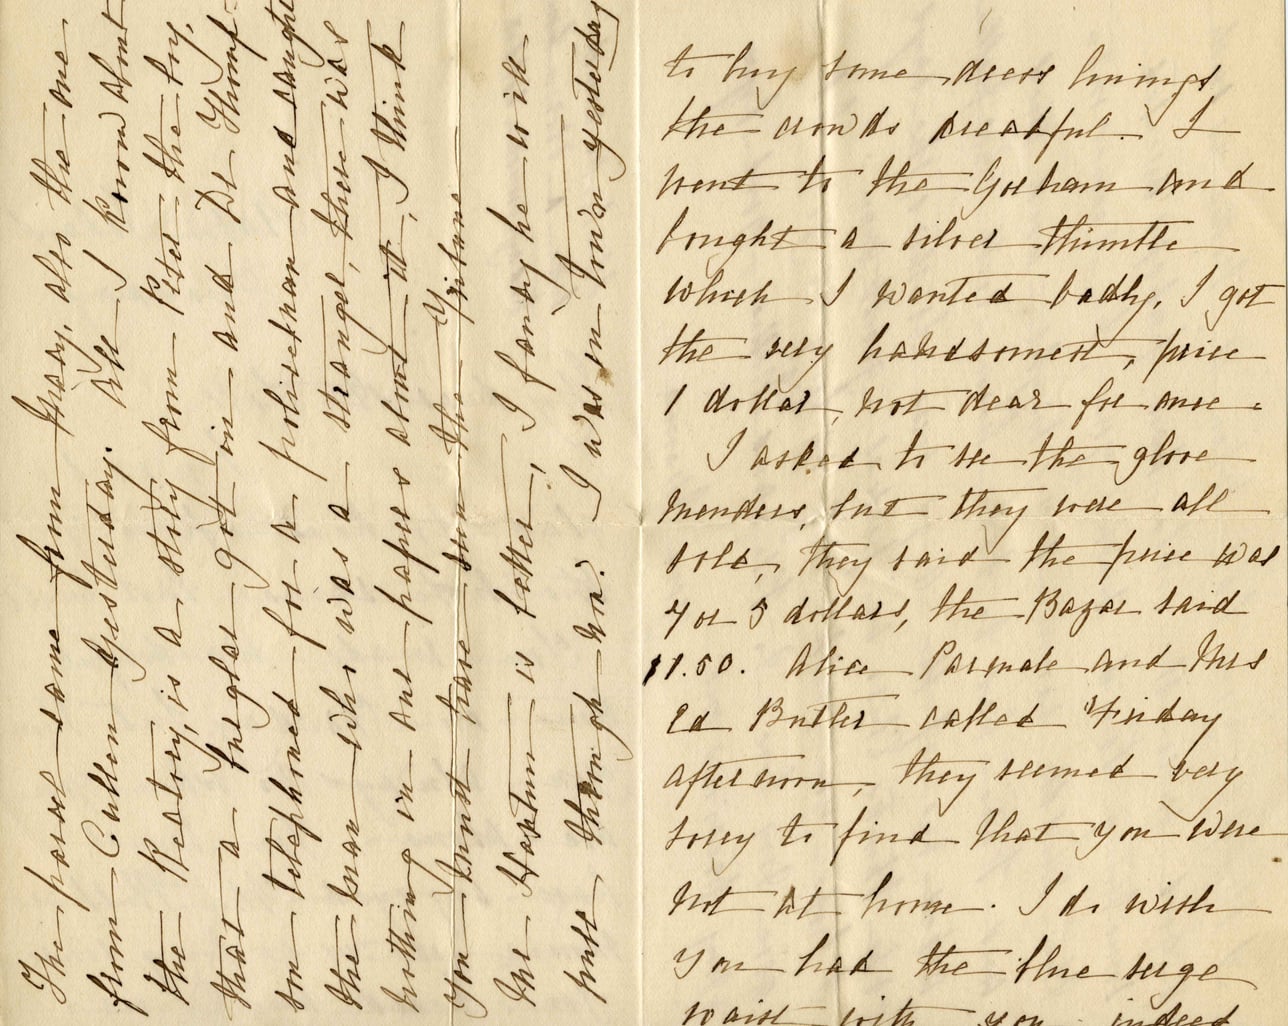 to buy some dress linings
the crowds dreadful. I
went to the Gorham and
bought a silver thimble
which I wanted badly, I got
the very handsomest, price
1 dollar, not dear for once.
I asked to see the glove
menders, but they were all
sold, they said the price was
4 or 5 dollars, the Bazar said
$1.50. Alice and Mrs
Ed Butler called Friday
afternoon, they seemed very
sorry to find that you were
not at home. I do wish
you had the blue serge
waist with you indeed
The parcel came from Macy, also the one
from Cullen yesterday. All I know about
the Rectory, is a story from Peter the boy,
that a burglar got in and Dr Thomp-
son telephoned for a policeman and caught
the man who was a stranger, there was
nothing in our papers about it, I think
You must have seen the
Mr Heptum is better, I fancy he will
pull through now. I was in Town yesterday